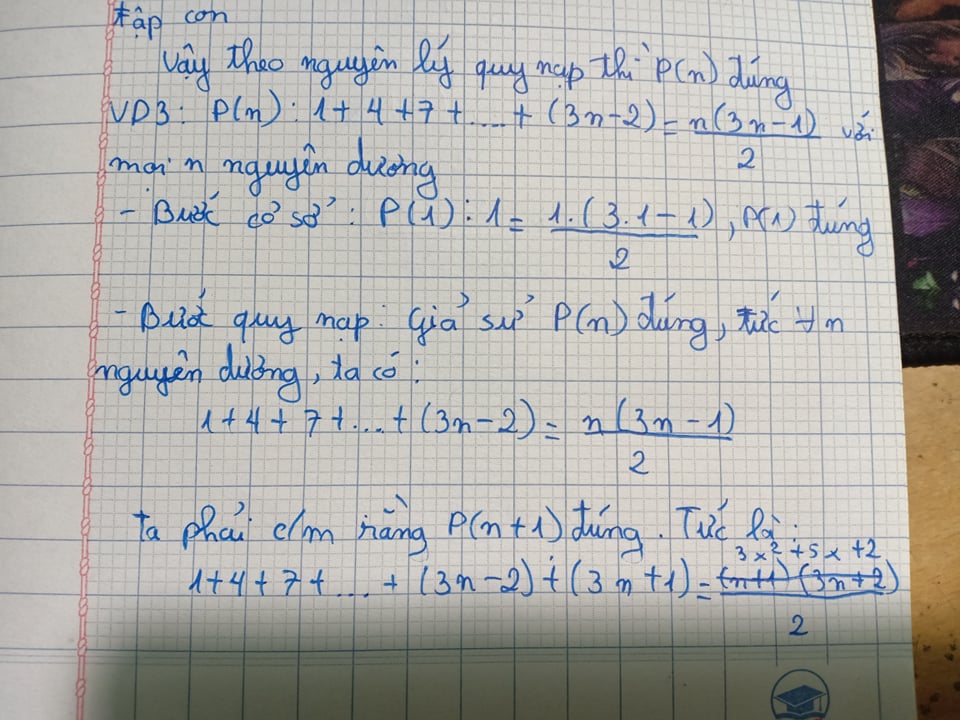 tập con
Vậy theo nguyên lý quy nạp thì P(n) đúng
VD3: P(n): 1 + 4 + 7 + ... + (3n-2) = n(3n-1)/2 với
mọi n nguyên dương
- Bước cơ sở: P(1): 1 = 1.(3.1-1)/2, P(1) đúng
- Bước quy nạp: Giả sử P(n) đúng, tức ∀n
nguyên dương, ta có:
1 + 4 + 7 + ... + (3n-2) = n(3n-1)/2
Ta phải c/m rằng P(n+1) đúng. Tức là:
3x² + 5x + 2
1 + 4 + 7 + ... + (3n-2) + (3n+1) = (n+1)(3n+2)/2